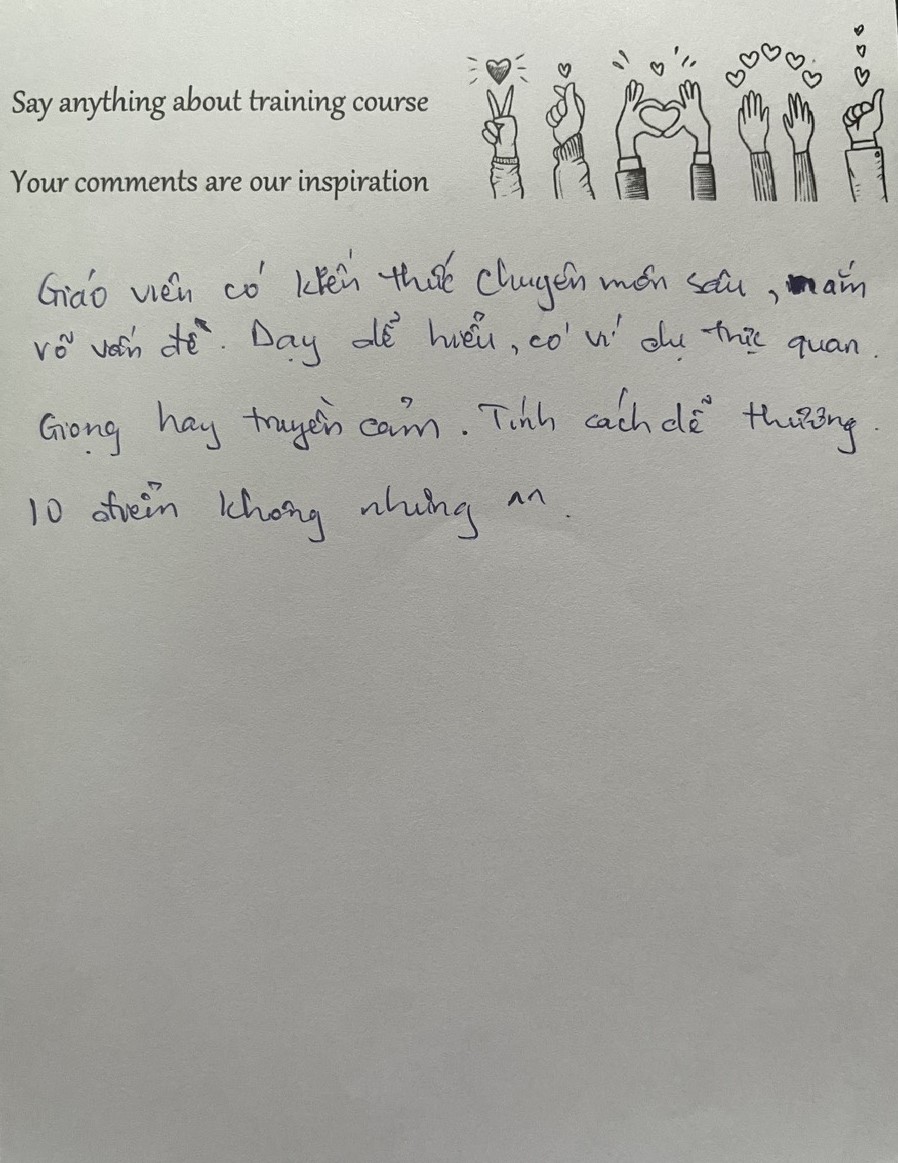 Say anything about training course
Your comments are our inspiration
Giáo viên có kiến thức chuyên môn sâu, nắm
rõ vấn đề. Dạy dễ hiểu, có ví dụ trực quan.
Giọng hay truyền cảm. Tính cách dễ thương.
10 điểm không nhưng ^^.